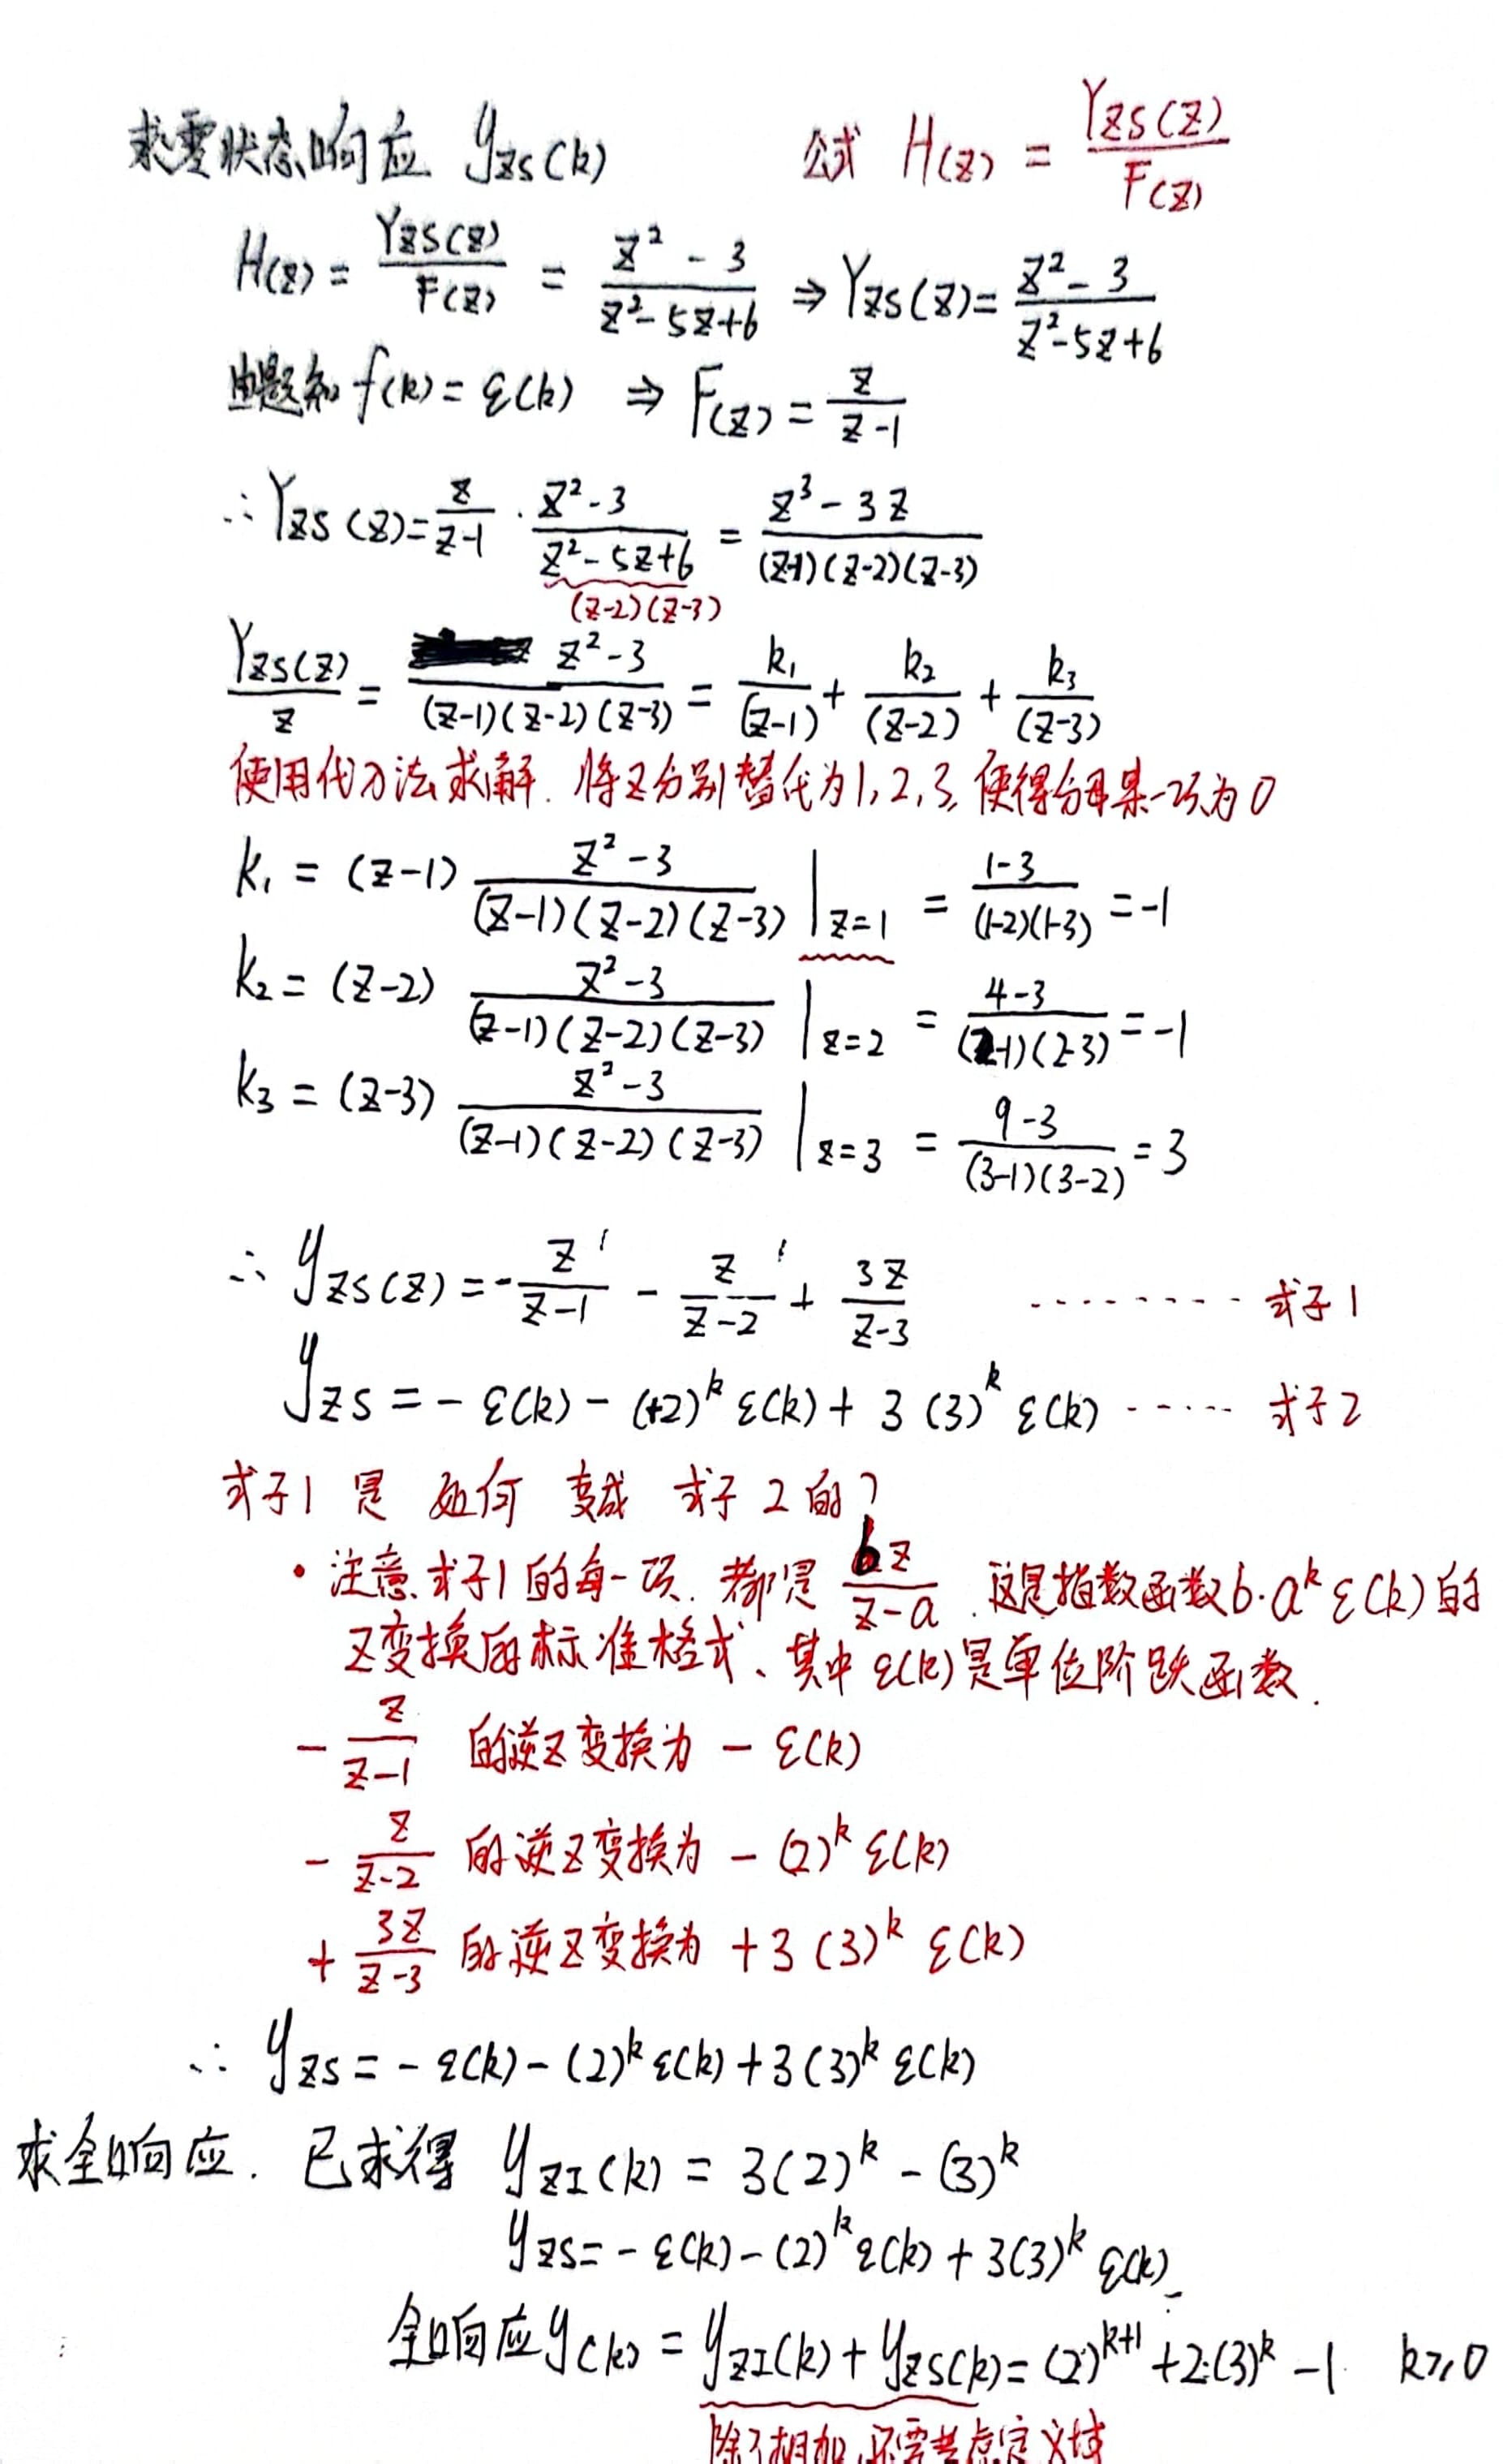 求零状态响应 yzs(k)  公式 H(z) = Yzs(z)/F(z)
H(z) = Yzs(z)/F(z) = (z²-3)/(z²-5z+6) ⇒ Yzs(z) = (z²-3)/(z²-5z+6)
由题知 f(k) = ε(k) ⇒ F(z) = z/(z-1)
∴ Yzs(z) = z/(z-1) · (z²-3)/(z²-5z+6) = (z³-3z)/((z-1)(z-2)(z-3))
(z-2)(z-3)
Yzs(z)/z = (z²-3)/((z-1)(z-2)(z-3)) = k₁/(z-1) + k₂/(z-2) + k₃/(z-3)
使用代入法求解. 将z分别替代为1,2,3, 使得分母某一项为0
k₁ = (z-1) (z²-3)/((z-1)(z-2)(z-3)) |z=1 = (1-3)/((1-2)(1-3)) = -1
k₂ = (z-2) (z²-3)/((z-1)(z-2)(z-3)) |z=2 = (4-3)/((2-1)(2-3)) = -1
k₃ = (z-3) (z²-3)/((z-1)(z-2)(z-3)) |z=3 = (9-3)/((3-1)(3-2)) = 3
∴ yzs(z) = -z/(z-1) - z/(z-2) + 3z/(z-3) ········ 式子1
yzs = -ε(k) - (+2)^k ε(k) + 3(3)^k ε(k) ····· 式子2
式子1 是 如何 变成 式子2的?
• 注意式子1的每一项. 都是 bz/(z-a). 这是指数函数b·a^k ε(k)的
Z变换的标准格式、其中ε(k)是单位阶跃函数.
-z/(z-1) 的逆z变换为 -ε(k)
-z/(z-2) 的逆z变换为 -(2)^k ε(k)
+3z/(z-3) 的逆z变换为 +3(3)^k ε(k)
∴ yzs = -ε(k) - (2)^k ε(k) + 3(3)^k ε(k)
求全响应. 已求得 yzI(k) = 3(2)^k - (3)^k
yzs = -ε(k) - (2)^k ε(k) + 3(3)^k ε(k)
全响应y(k) = yzI(k) + yzs(k) = (2)^(k+1) + 2·(3)^k - 1 k≥0
除了相加,还需考虑定义域